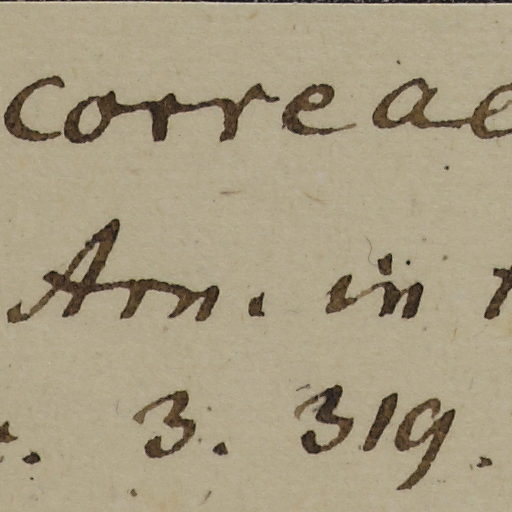 correae
Arn. in
. 3. 319.